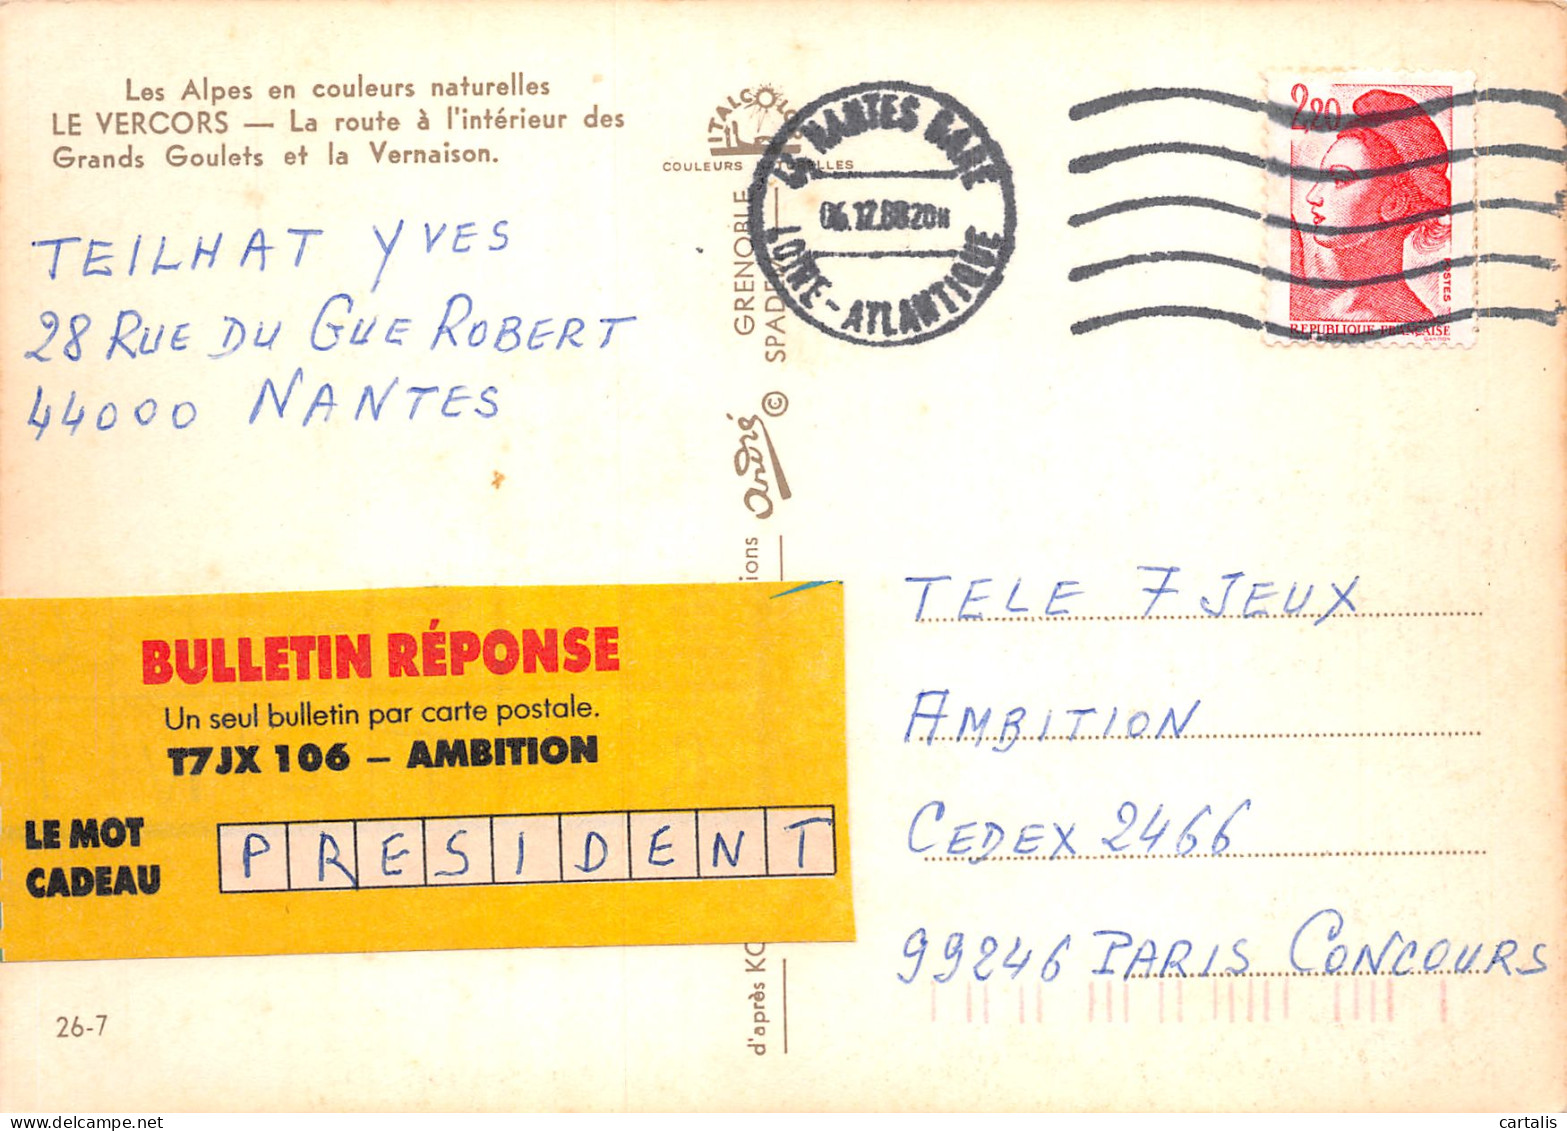 Les Alpes en couleurs naturelles
LE VERCORS — La route à l'intérieur des
Grands Goulets et la Vernaison.
TEILHAT YVES
28 RUE DU GUE ROBERT
44000 NANTES
BULLETIN RÉPONSE
Un seul bulletin par carte postale.
T7JX 106 — AMBITION
LE MOT
CADEAU
PRESIDENT
26-7
COULEURS
GRENOBLE
© SPADEM
andré
d'après KO
NANTES GARE
06.12.88 20H
LOIRE-ATLANTIQUE
2,20
POSTES
REPUBLIQUE FRANÇAISE
TELE 7 JEUX
AMBITION
CEDEX 2466
99246 PARIS CONCOURS
cartalis